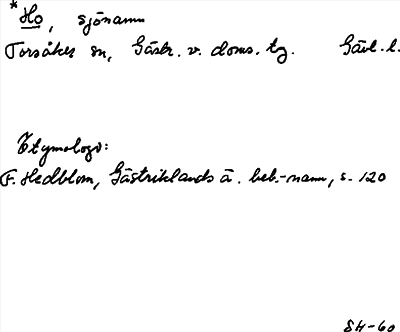 *Ho, sjönamn
Torsåkers sn, Gästr. v. doms. tg. Gävl. l.
Etymologi:
F. Hedblom, Gästriklands ä. beb.-namn, s. 120
SH-60